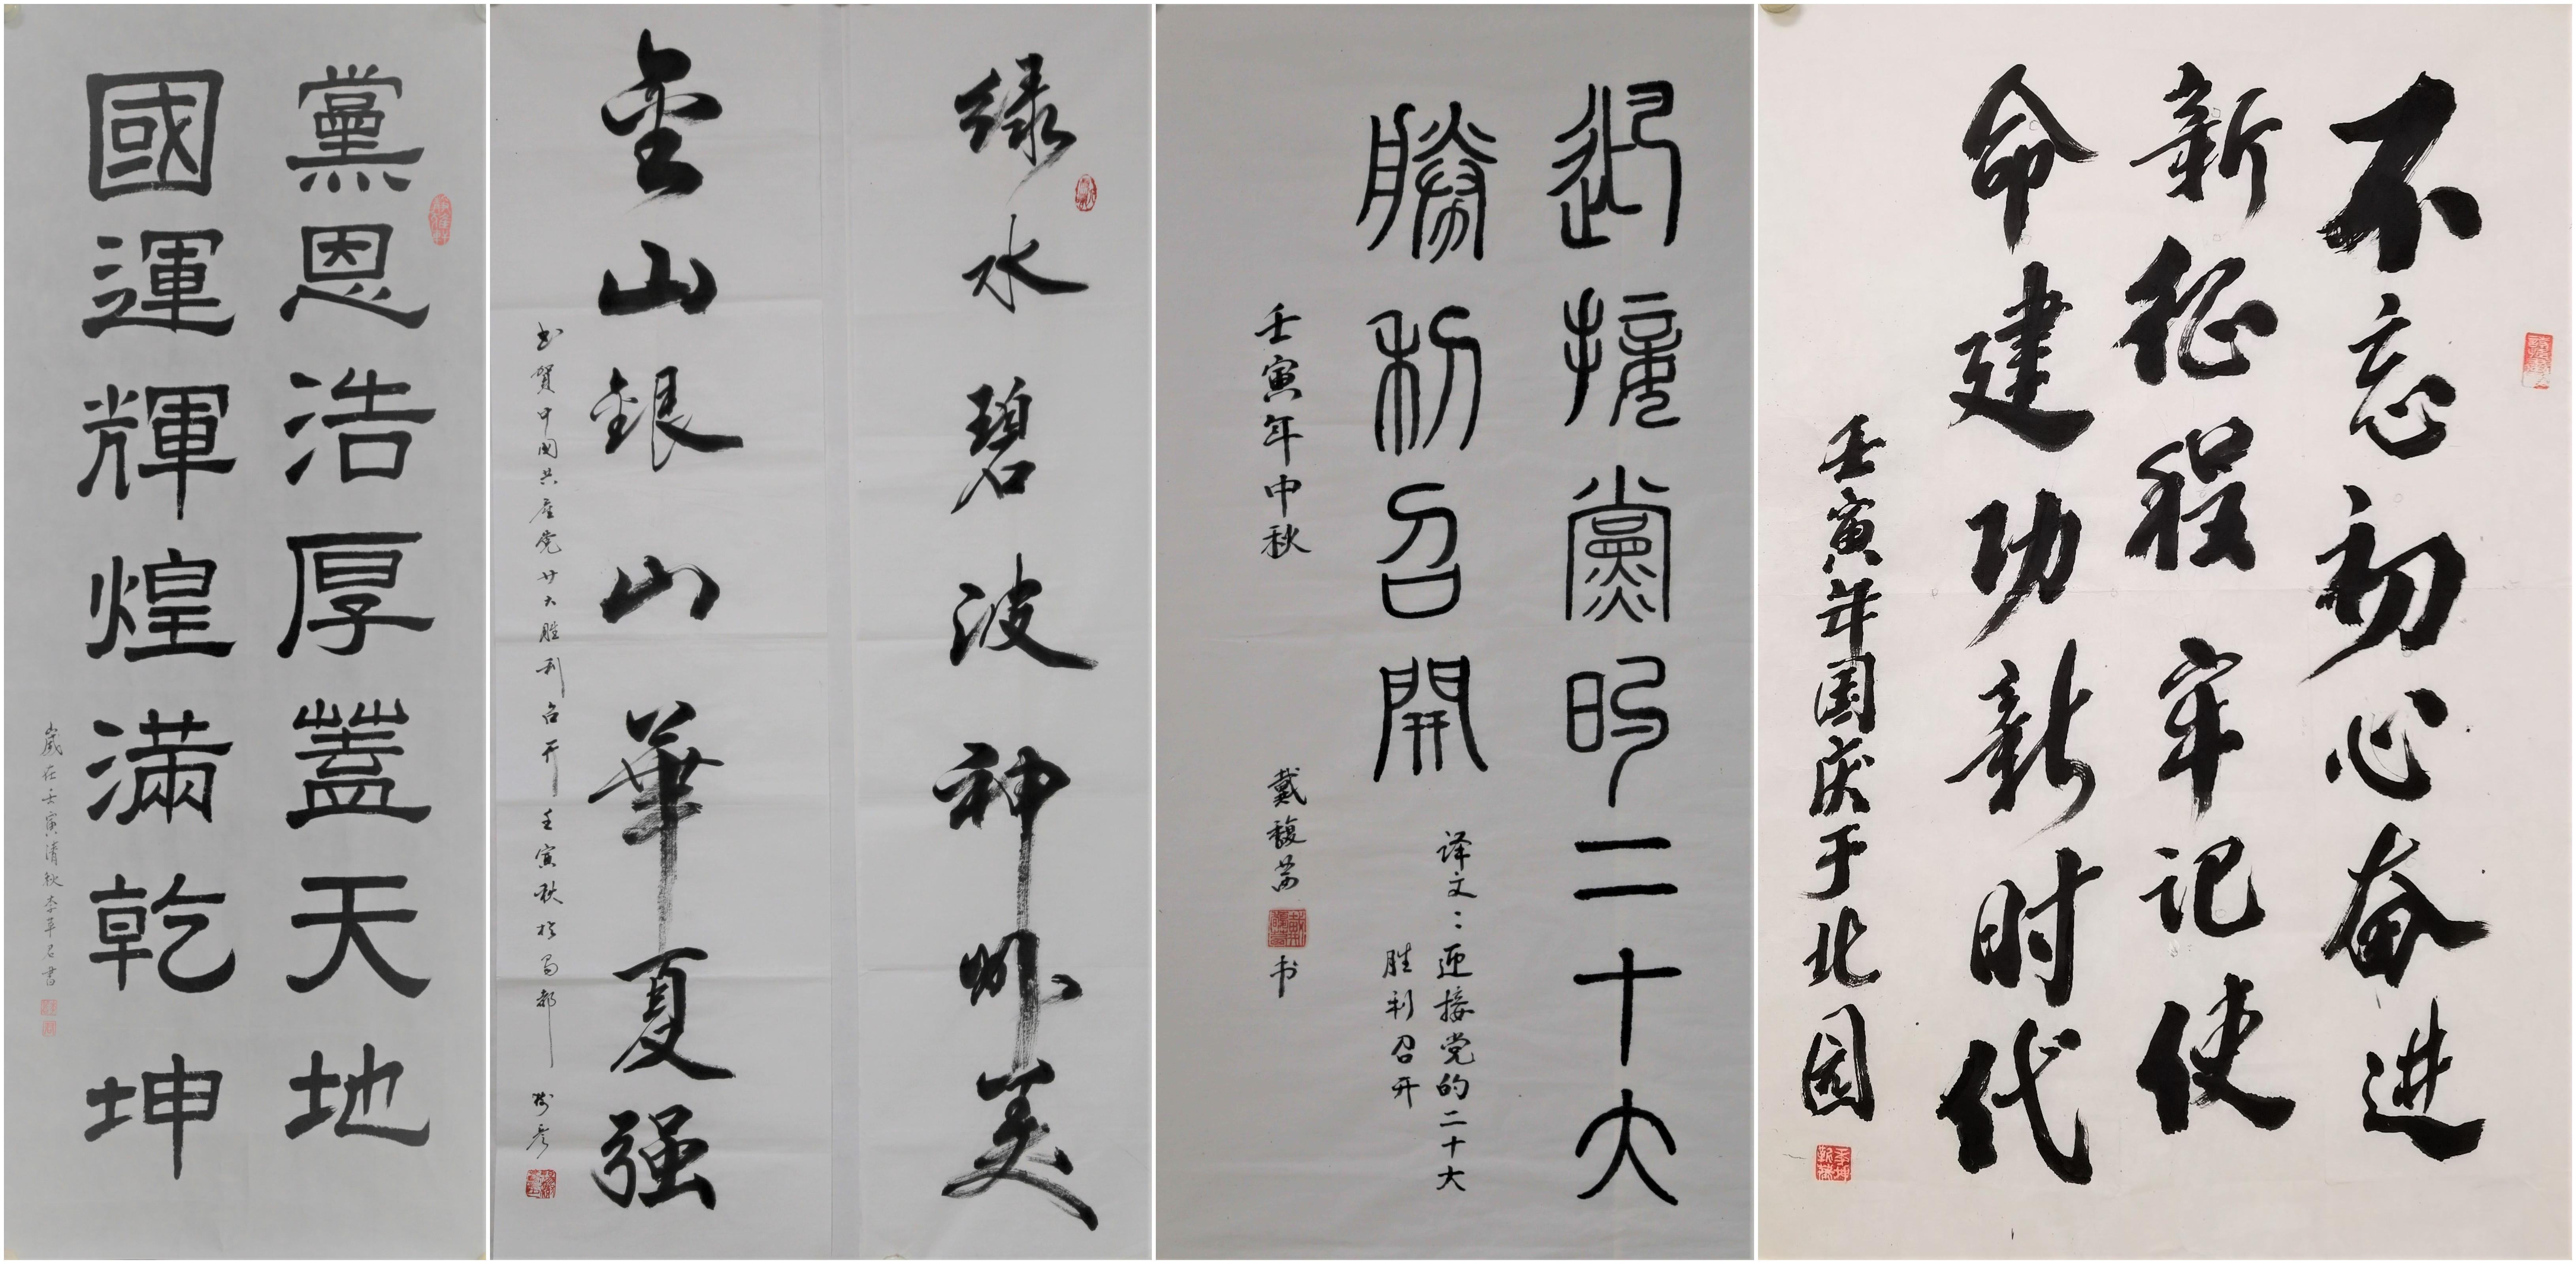 黨恩浩厚蓋天地
國運輝煌滿乾坤
歲在壬寅清秋李平君書
绿水碧波神州美
金山銀山華夏强
书贺中国共产党廿大胜利召开壬寅秋於蜀都
迎接黨的二十大
勝利召開
译文：迎接党的二十大
胜利召开
壬寅年中秋
戴馥 书
不忘初心奋进
新征程牢记使
命建功新时代
壬寅年国庆于北园